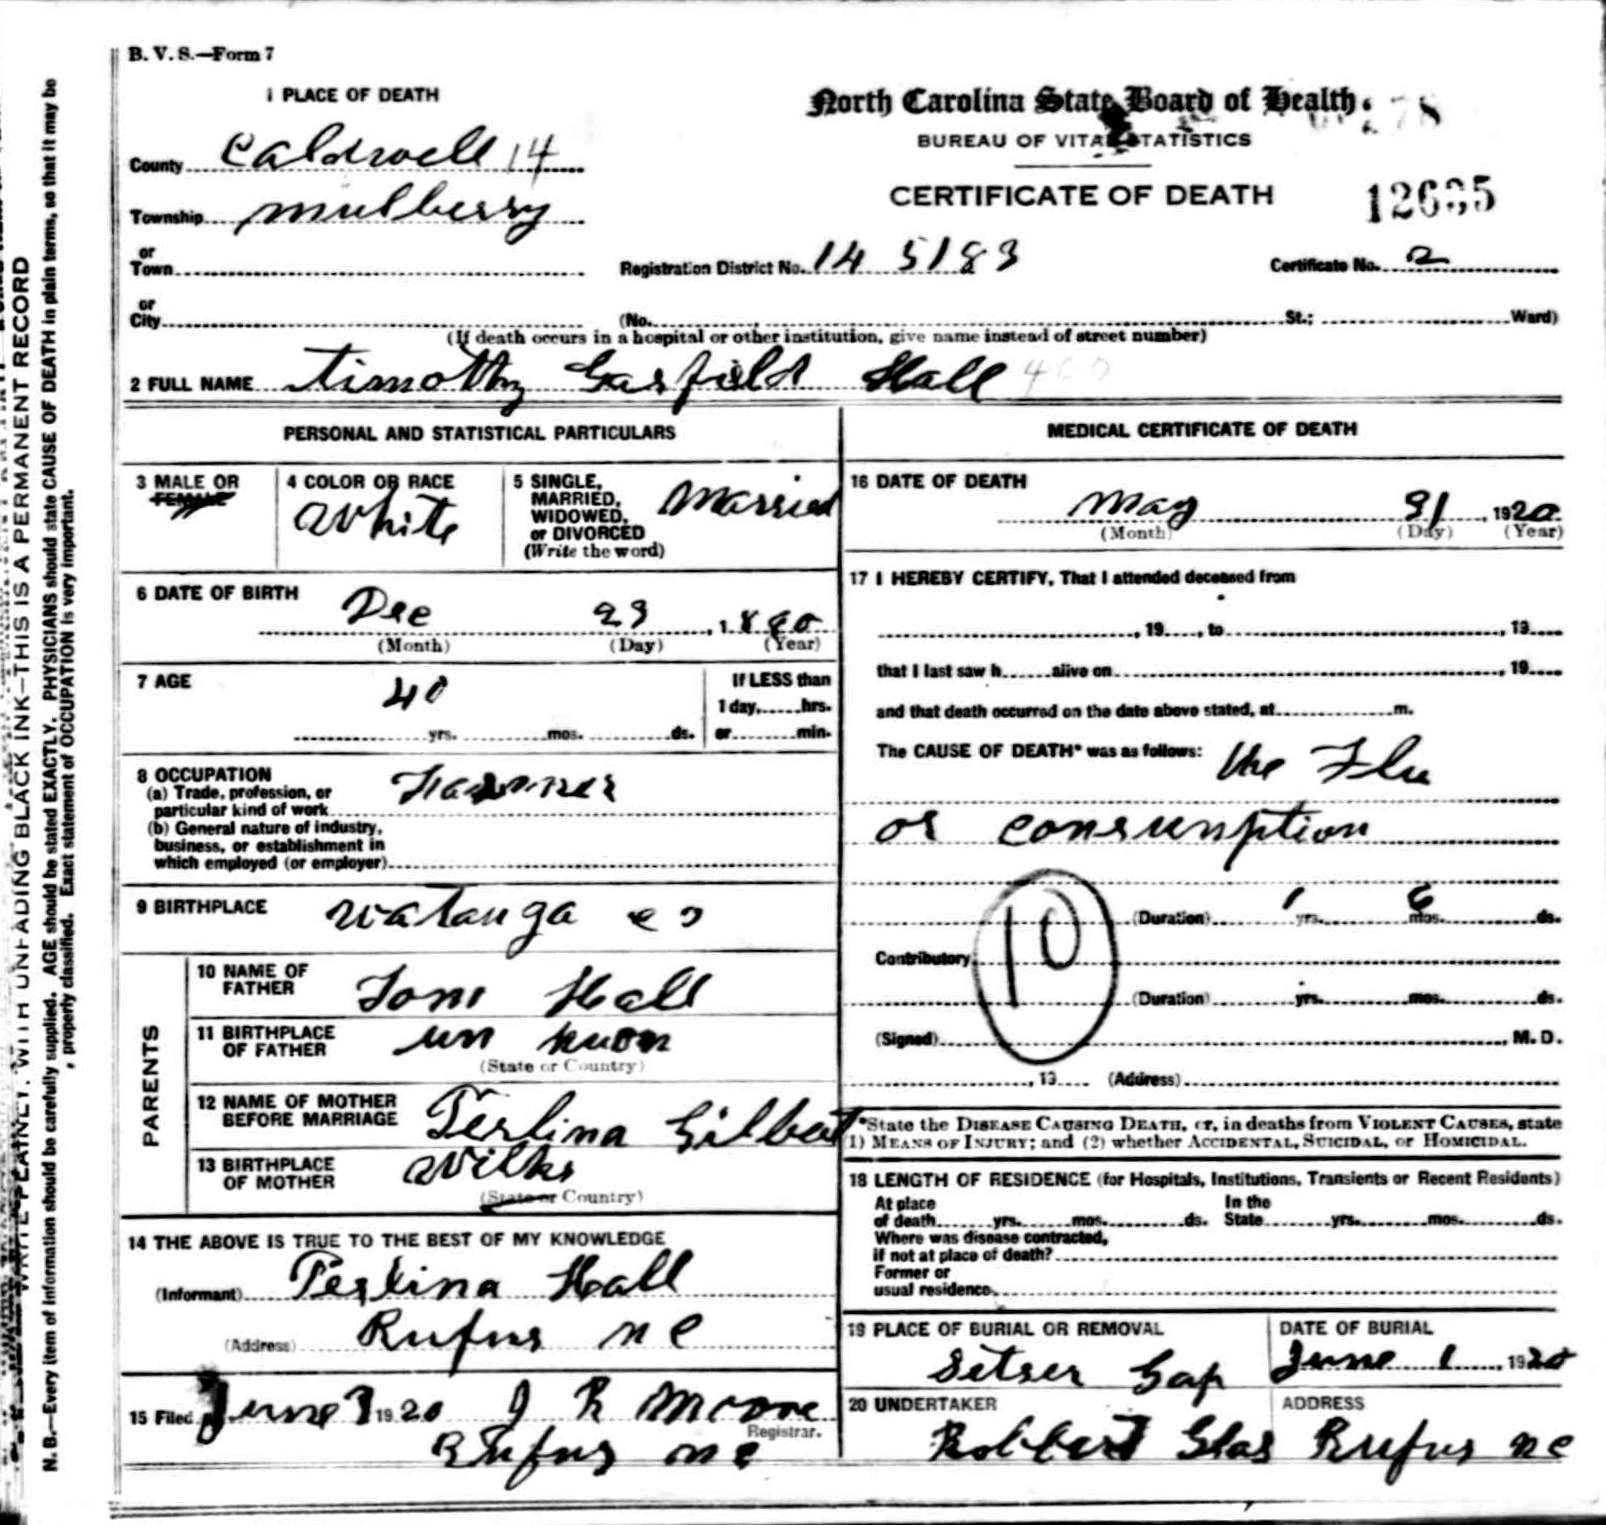 B. V. S.—Form 7
1 PLACE OF DEATH
North Carolina State Board of Health
BUREAU OF VITAL STATISTICS
CERTIFICATE OF DEATH
County Caldwell 14
Township Mulberry
or
Town
Registration District No. 14 5183
Certificate No. 2
or
City
(No. St.; Ward)
(If death occurs in a hospital or other institution, give name instead of street number)
2 FULL NAME Timothy Garfield Hall
PERSONAL AND STATISTICAL PARTICULARS
3 MALE OR
FEMALE
4 COLOR OR RACE
White
5 SINGLE,
MARRIED,
WIDOWED,
or DIVORCED
(Write the word)
Married
6 DATE OF BIRTH
Dec 23, 1880
(Month) (Day) (Year)
7 AGE
40
yrs. mos. ds.
If LESS than
1 day, hrs.
or min.
8 OCCUPATION
(a) Trade, profession, or
particular kind of work Farmer
(b) General nature of industry,
business, or establishment in
which employed (or employer)
9 BIRTHPLACE Watauga Co
PARENTS
10 NAME OF
FATHER Tom Hall
11 BIRTHPLACE
OF FATHER un knon
(State or Country)
12 NAME OF MOTHER
BEFORE MARRIAGE Perlina Gilbert
13 BIRTHPLACE
OF MOTHER Wilks
(State or Country)
14 THE ABOVE IS TRUE TO THE BEST OF MY KNOWLEDGE
(Informant) Perlina Hall
(Address) Rufus N C
15 Filed June 3 1920 J R Moore
Registrar.
Rufus N C
MEDICAL CERTIFICATE OF DEATH
16 DATE OF DEATH
May 31, 1920
(Month) (Day) (Year)
17 I HEREBY CERTIFY, That I attended deceased from
, 19, to , 19
that I last saw h alive on , 19
and that death occurred on the date above stated, at m.
The CAUSE OF DEATH* was as follows: the Flu
or consumption
10
(Duration) 1 yrs. 6 mos. ds.
Contributory
(Duration) yrs. mos. ds.
(Signed) , M. D.
, 19 (Address)
*State the DISEASE CAUSING DEATH, or, in deaths from VIOLENT CAUSES, state
1) MEANS OF INJURY; and (2) whether ACCIDENTAL, SUICIDAL, or HOMICIDAL.
18 LENGTH OF RESIDENCE (for Hospitals, Institutions, Transients or Recent Residents)
At place In the
of death yrs. mos. ds. State yrs. mos. ds.
Where was disease contracted,
if not at place of death?
Former or
usual residence
19 PLACE OF BURIAL OR REMOVAL
Setser Gap
DATE OF BURIAL
June 1, 1920
20 UNDERTAKER
Robbert Glas
ADDRESS
Rufus N C
WRITE PLAINLY, WITH UNFADING BLACK INK—THIS IS A PERMANENT RECORD
N. B.—Every item of information should be carefully supplied. AGE should be stated EXACTLY. PHYSICIANS should state CAUSE OF DEATH in plain terms, so that it may be
properly classified. Exact statement of OCCUPATION is very important.